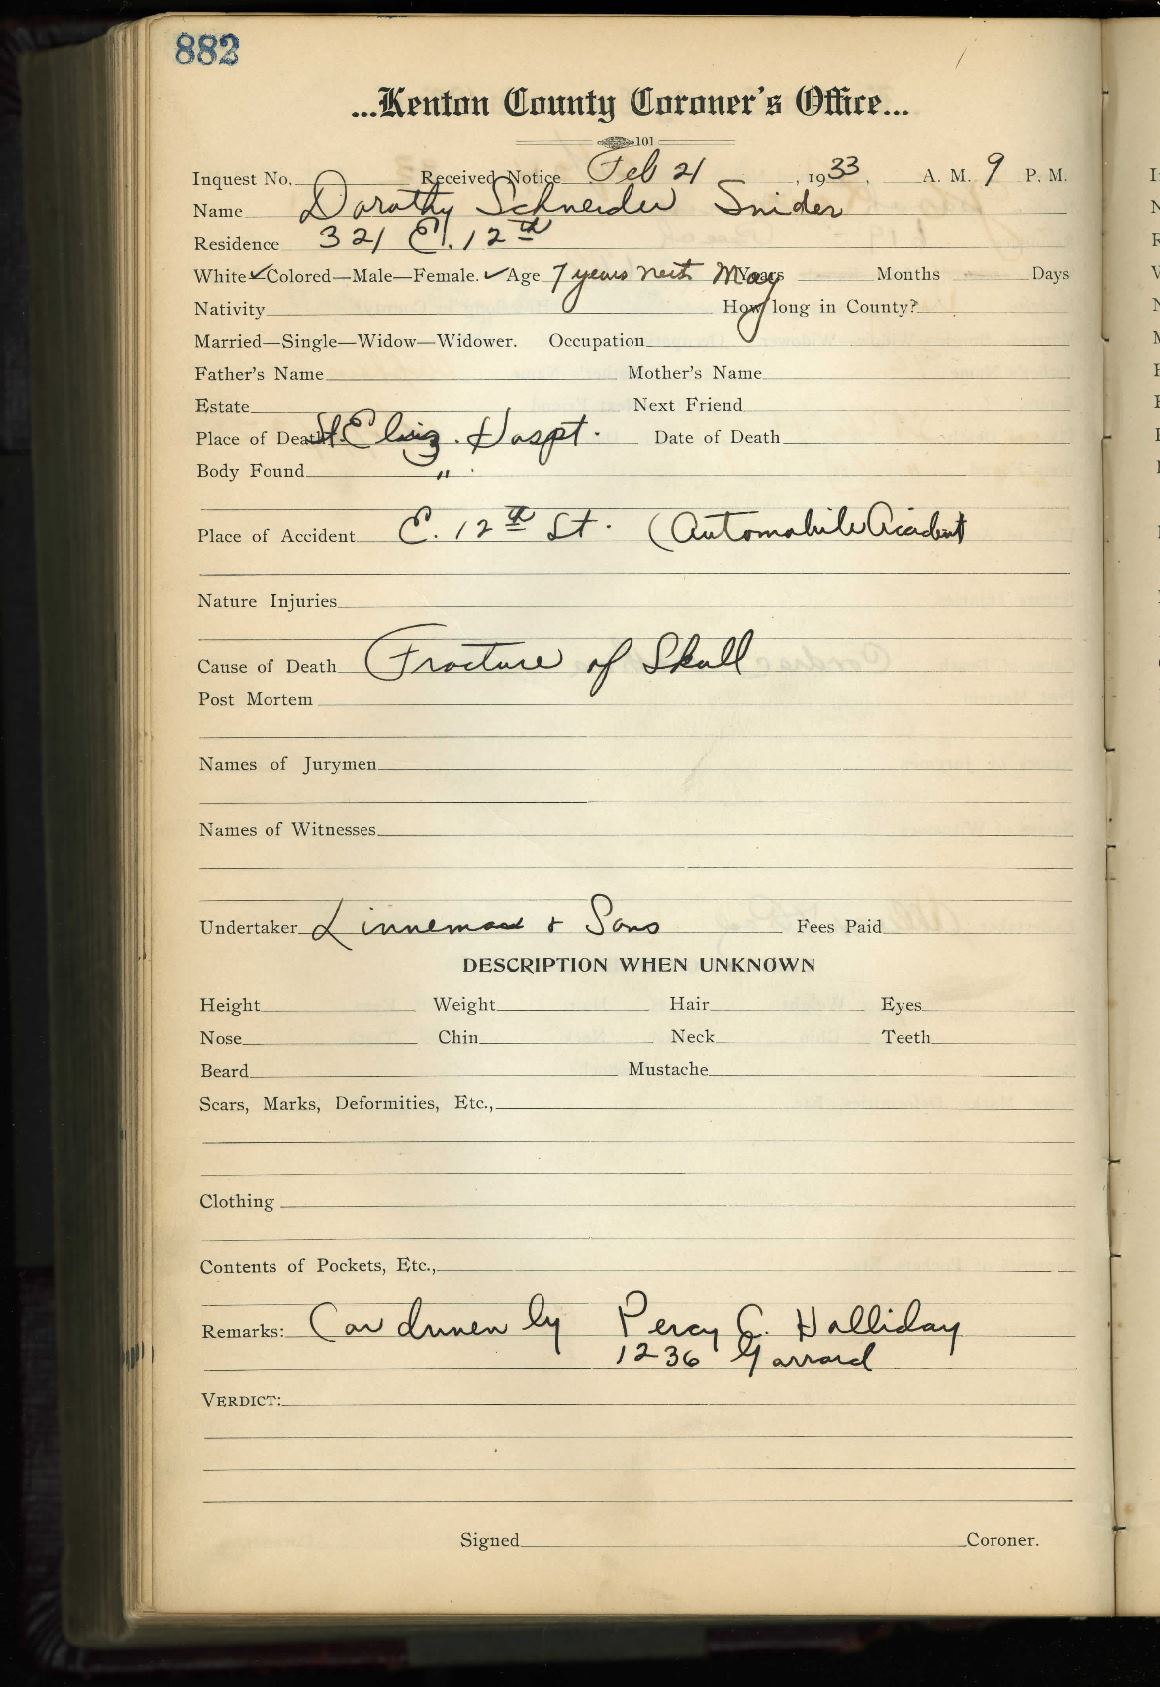 882
...Kenton County Coroner's Office...
101
Inquest No. Received Notice Feb 21, 1933, A. M. 9 P. M.
Name Dorothy Schneider Snider
Residence 321 E. 12th
White ✓ Colored—Male—Female. ✓ Age 7 years next May Years Months Days
Nativity How long in County?
Married—Single—Widow—Widower. Occupation
Father's Name Mother's Name
Estate Next Friend
Place of Death St. Eliz. Hospt. Date of Death
Body Found "
Place of Accident E. 12th St. (Automobile Accident
Nature Injuries
Cause of Death Fracture of Skull
Post Mortem
Names of Jurymen
Names of Witnesses
Undertaker Linneman & Sons Fees Paid
DESCRIPTION WHEN UNKNOWN
Height Weight Hair Eyes
Nose Chin Neck Teeth
Beard Mustache
Scars, Marks, Deformities, Etc.,
Clothing
Contents of Pockets, Etc.,
Remarks: Car driven by Percy C. Halliday
1236 Garrard
VERDICT:
Signed Coroner.